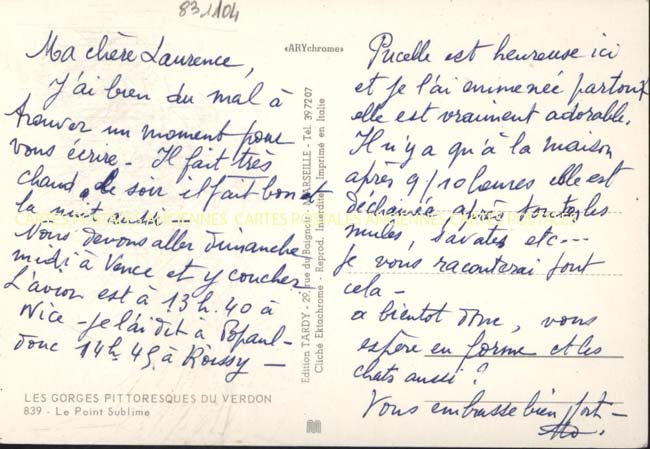 83 1104
Ma chère Laurence,
J'ai bien du mal à
trouver un moment pour
vous écrire - Il fait très
chaud, le soir il fait bon et
la nuit aussi -
Nous devons aller dimanche
midi à Vence et y coucher
L'avion est à 13h.40 à
Nice - je l'ai dit à Popaul -
donc 14h45 à Roissy -
LES GORGES PITTORESQUES DU VERDON
839 - Le Point Sublime
«ARYchrome»
Edition TARDY - 29, rue du Baignoir - MARSEILLE - Tél. 39 72 07
Cliché Ektachrome - Reprod. Interdite - Imprimé en Italie
Pucelle est heureuse ici
et je l'ai emmenée partout
elle est vraiment adorable.
Il n'y a qu'à la maison
après 9/10 heures elle est
déchainée, après toutes les
mules, savates etc...
Je vous raconterai tout
cela -
a bientot donc, vous
espère en forme et les
chats aussi ?
Vous embrasse bien fort -
CARTES POSTALES ANCIENNES CARTES POSTALES ANCIENNES CARTES POSTALES